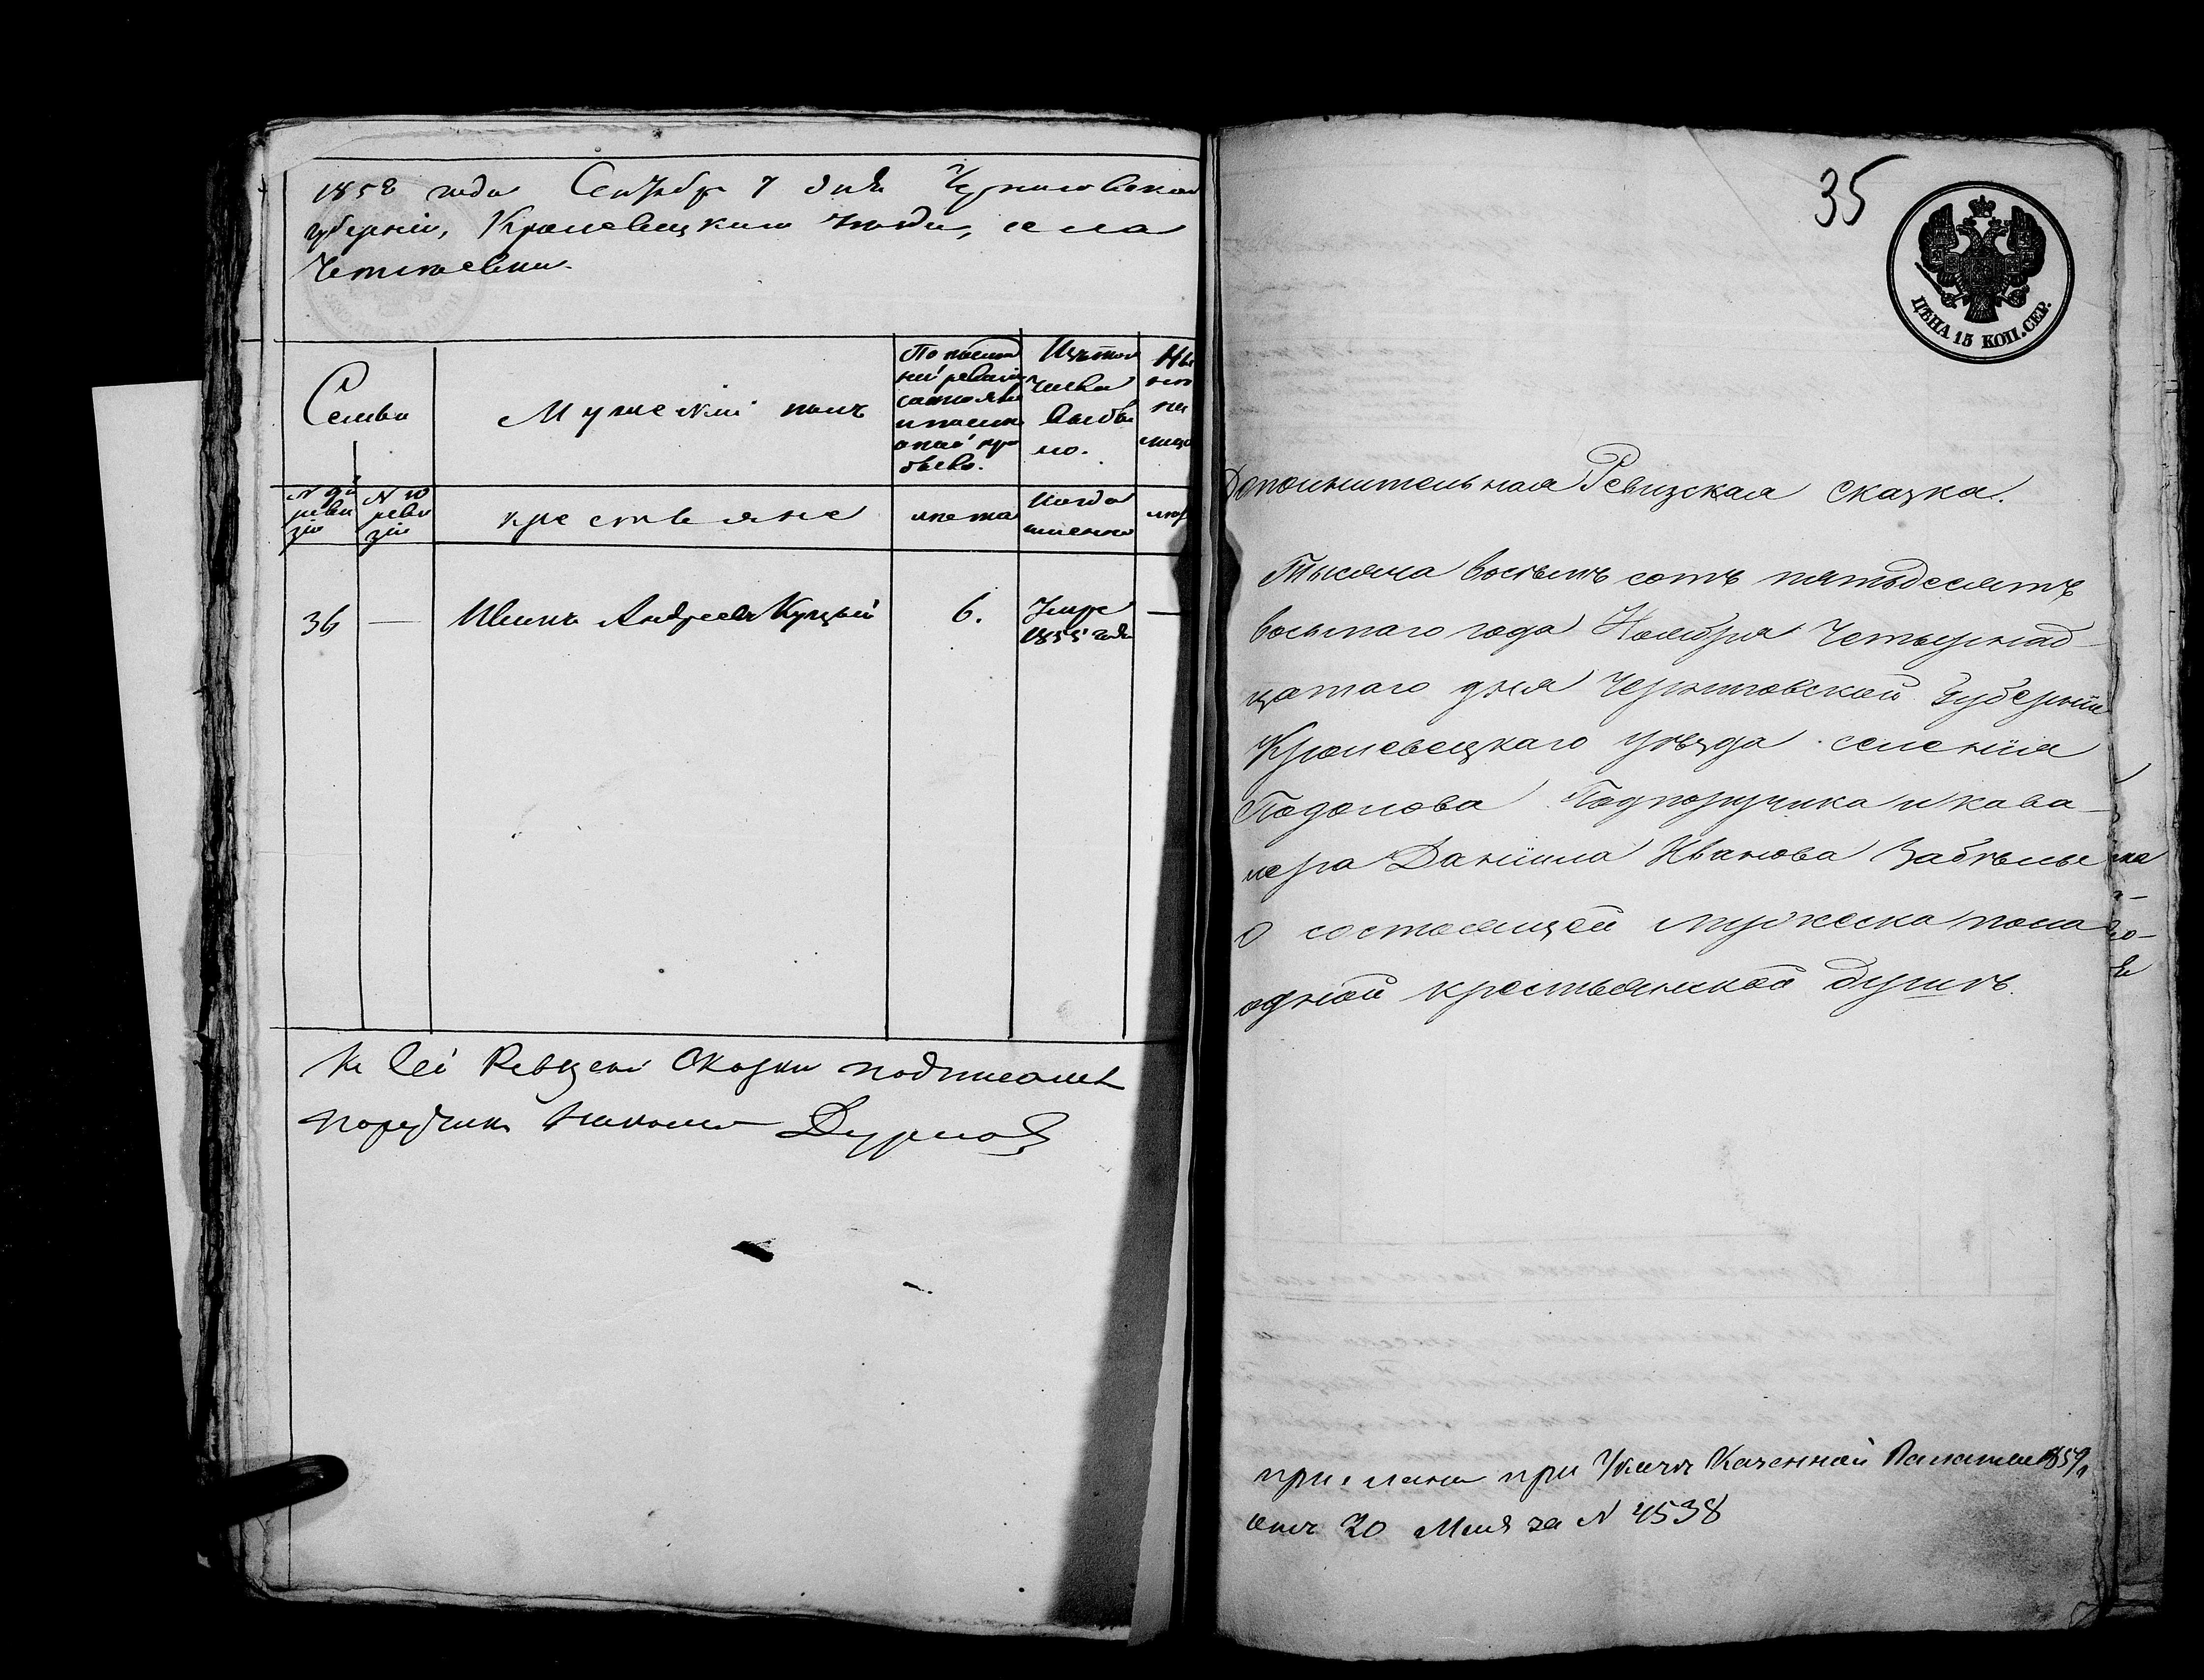 1858 года Сентября 7 дня Черниговской
губерніи, Кролевецкаго уезда, села
Семьи
Мужескій полъ
По послед
ней ревизіи
состояло
и после
оной при
было.
Изъ того
числа
выбы
ло.
Ны
не
на
лицо
№ 9й
реви
зіи
№ 10
реви
зіи
крестьяне
лета
когда
именно
36
—
Иванъ Андреевъ Куцый
6.
Умре
1855 года
—
К сей Ревизской Сказки подписался
поручик Дурнов
35
ЦѢНА 15 КОП. СЕР.
Дополнительная Ревизская Сказка.
Тысяча восемь сотъ пятьдесятъ
восьмаго года Ноября Четырнад
цатаго дня Черниговской Губерніи
Кролевецкаго уѣзда селенія
Подолова Подпоручика и кава
лера Даніила Иванова Забѣлы
о состоящей мужеска пола
одной крестьянской душѣ.
при указѣ Казенной Палаты 1859
отъ 20 Мая за № 4538